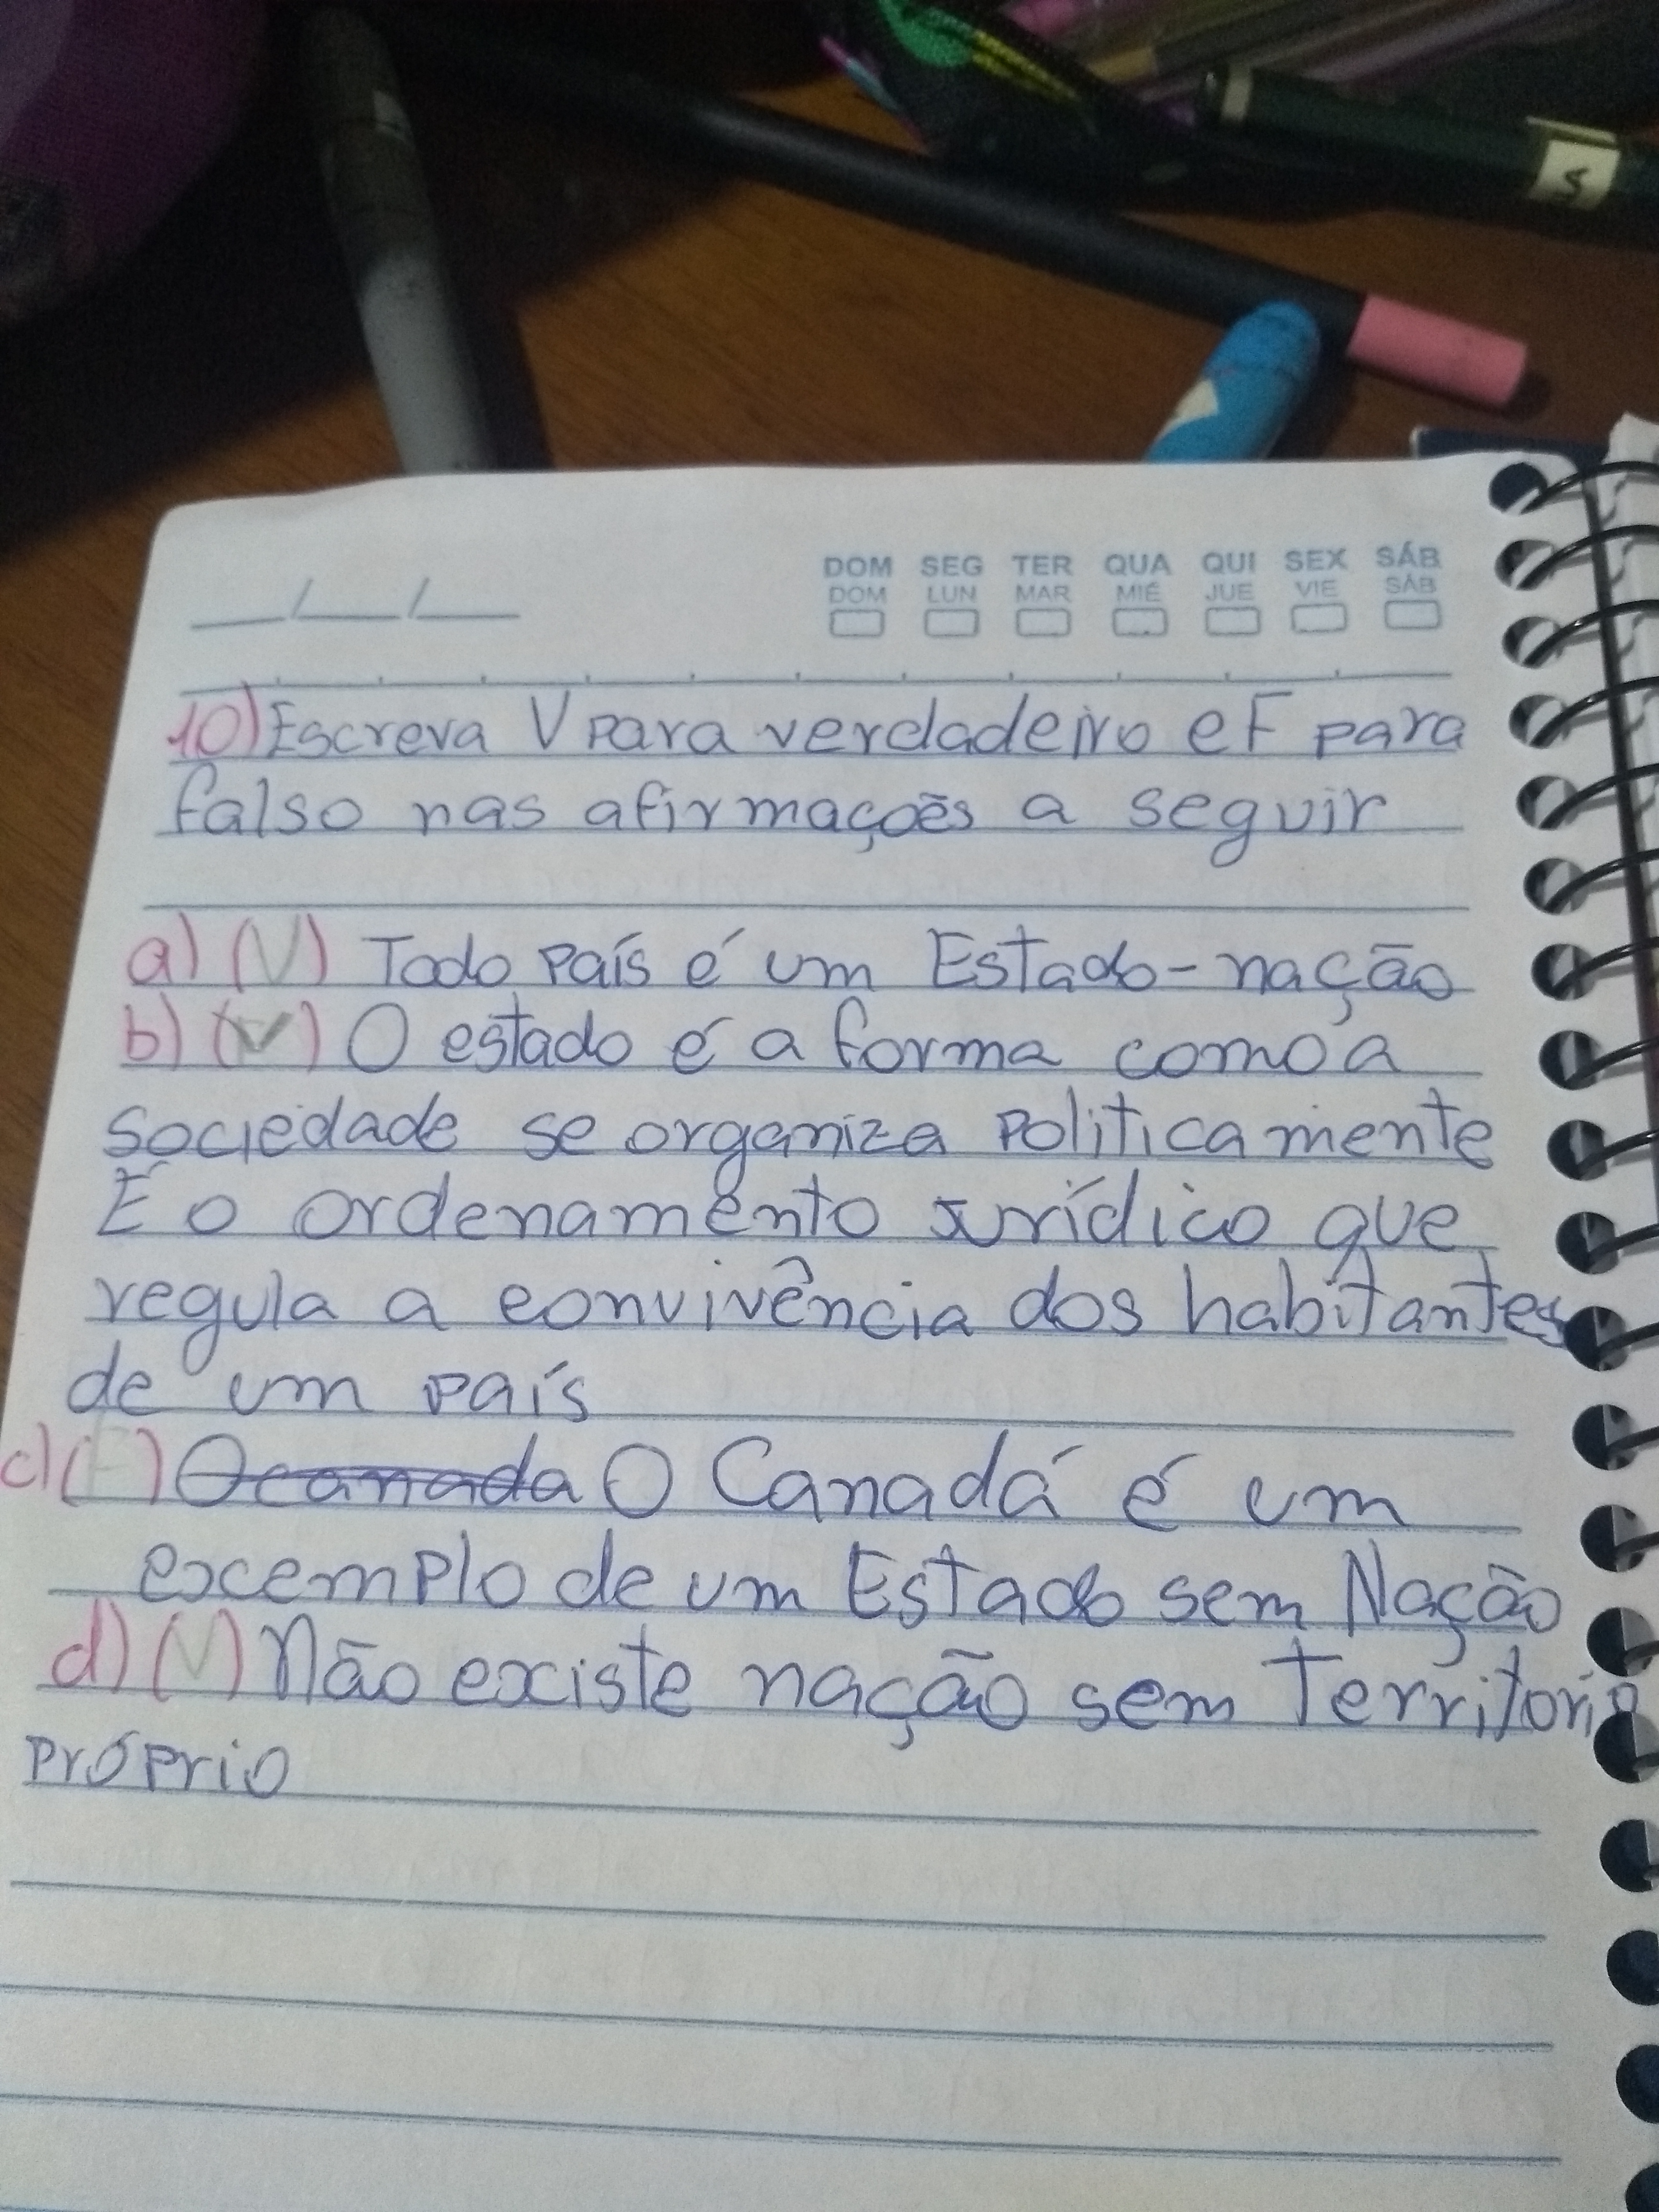 DOM SEG TER QUA QUI SEX SÁB
DOM LUN MAR MIÉ JUE VIE SÁB
10) Escreva V para verdadeiro e F para
falso nas afirmaçoẽs a seguir
a) (V) Todo País é um Estado-nação
b) (V) O estado é a forma como a
sociedade se organiza Politicamente
É o ordenamento jurídico que
regula a convivência dos habitantes
de um país
c) (F) O canada O Canadá é um
excemplo de um Estado sem Nação
d) (V) Não existe nação sem Territorio
próprio